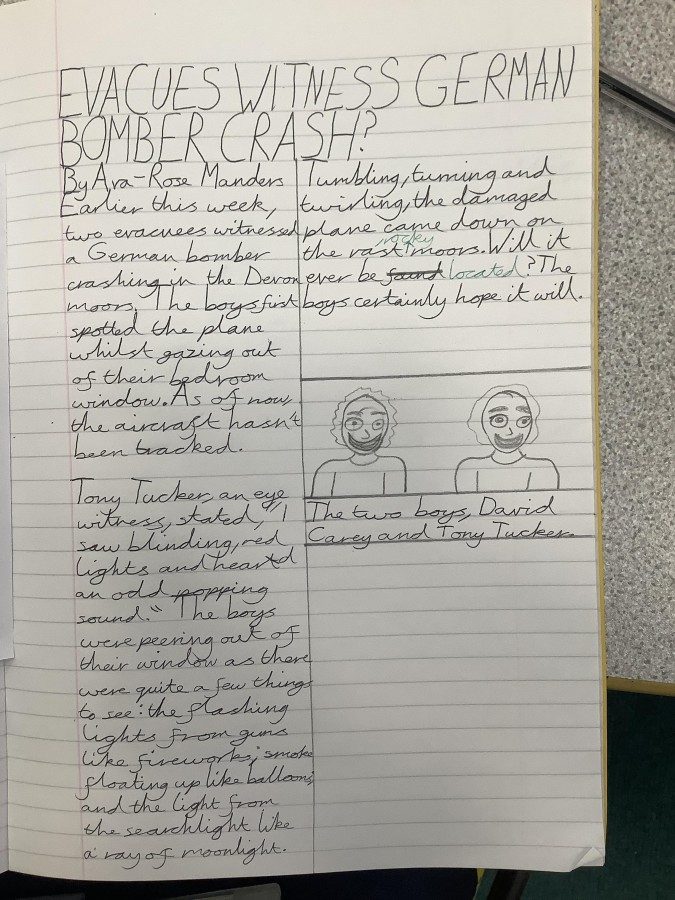 EVACUES WITNESS GERMAN
BOMBER CRASH?
By Ava-Rose Manders
Earlier this week,
two evacuees witnessed
a German bomber
crashing in the Devon
moors. The boys first
spotted the plane
whilst gazing out
of their bedroom
window. As of now
the aircraft hasn't
been tracked.
Tony Tucker, an eye
witness, stated, "I
saw blinding, red
lights and heartd
an odd popping
sound." The boys
were peering out of
their window as there
were quite a few things
to see: the flashing
lights from guns
like fireworks; smoke
floating up like balloons;
and the light from
the searchlight like
a ray of moonlight.
Tumbling, turning and
twirling, the damaged
plane came down on
the vast rocky moors. Will it
ever be found located? The
boys certainly hope it will.
The two boys, David
Carey and Tony Tucker.